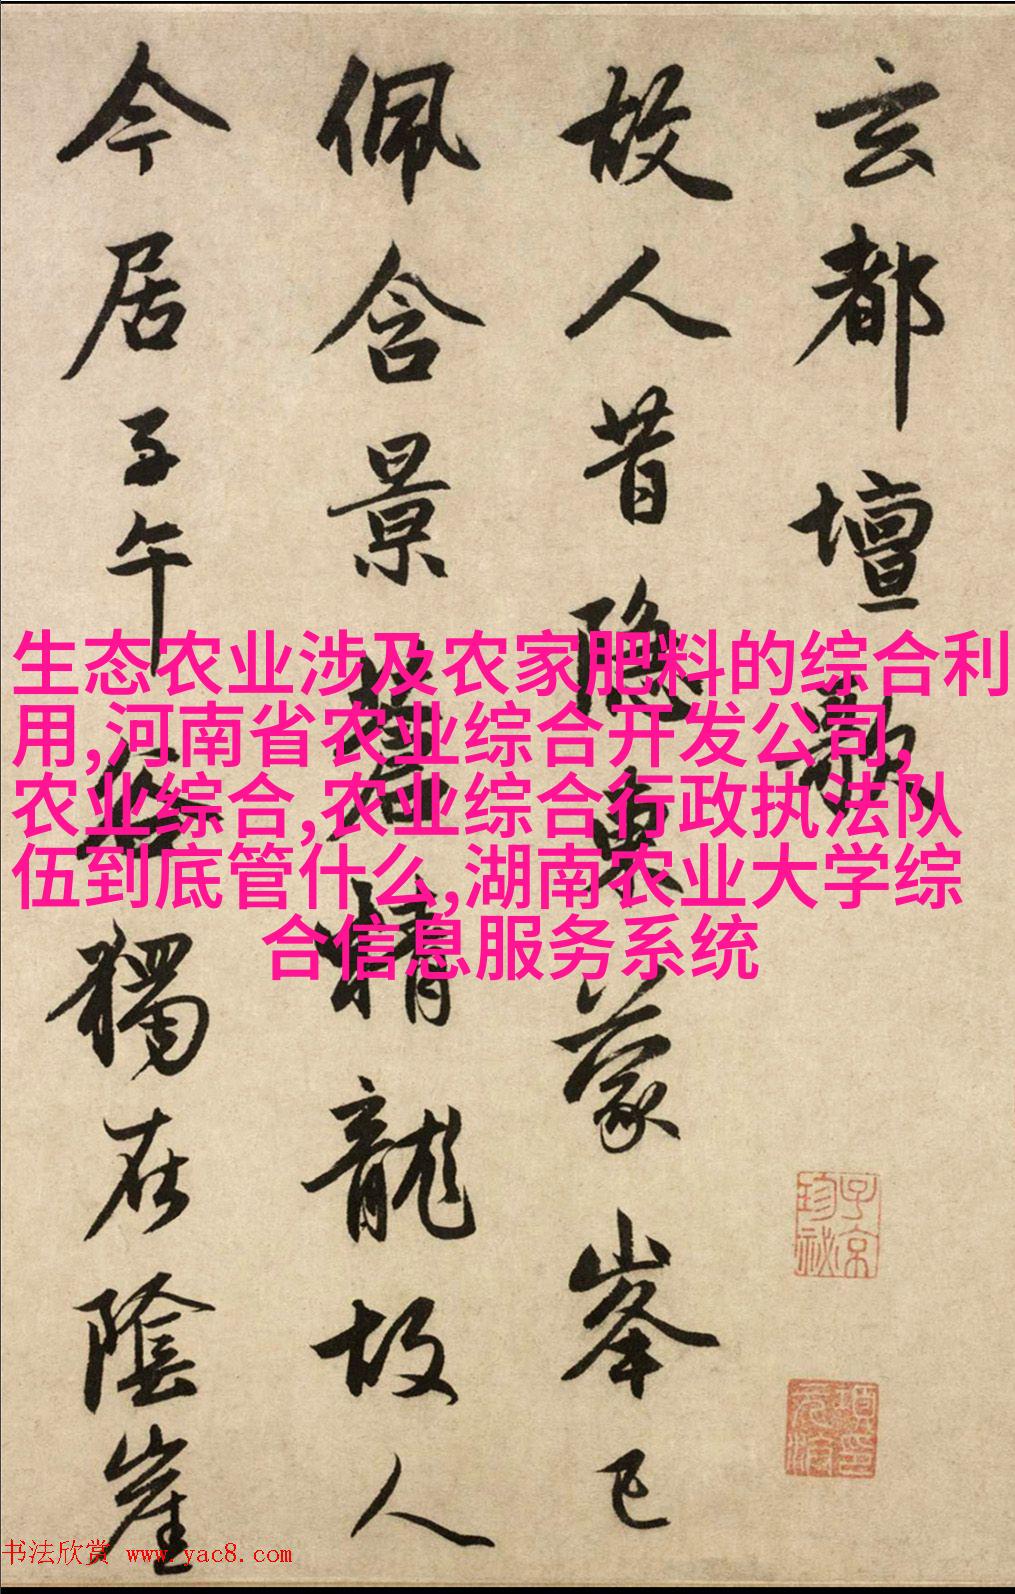 玄都壇歌
故人昔隐東蒙峯已
佩含景蒼精龍故人
今居子午谷獨在陰崖
生态农业涉及农家肥料的综合利
用,河南省农业综合开发公司,
农业综合,农业综合行政执法队
伍到底管什么,湖南农业大学综
合信息服务系统
子京
珍祕
书法欣赏 www.yac8.com